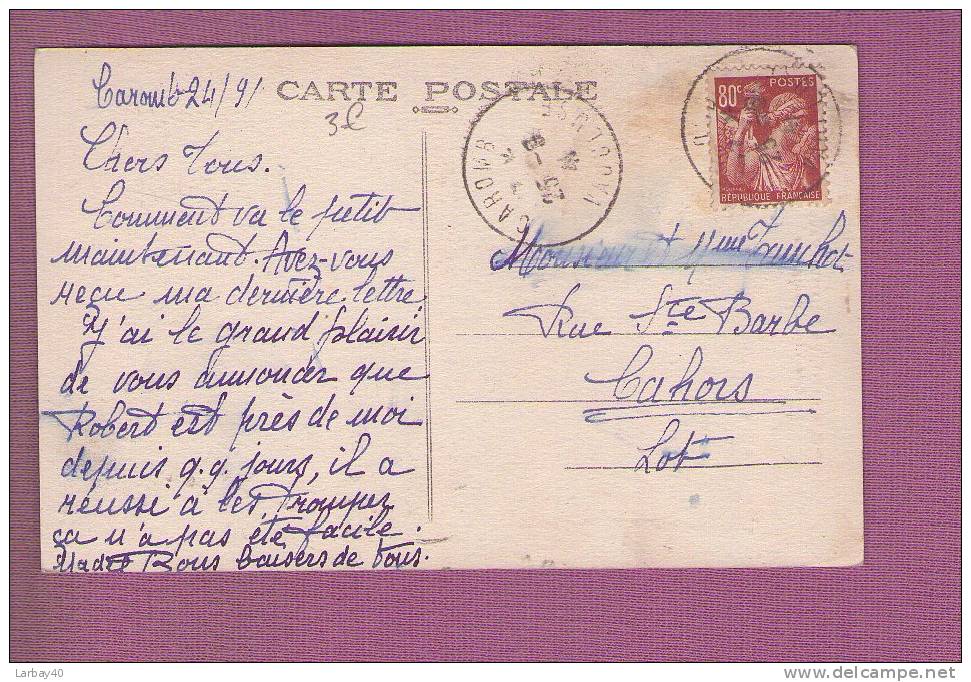 Caromb 24/9/
CARTE POSTALE
3€
Chers Tous.
Comment va le petit
maintenant. Avez-vous
reçu ma dernière lettre
J'ai le grand plaisir
de vous annoncer que
Robert est près de moi
depuis q.q. jours, il a
réussi à les tromper
ça n'a pas été facile.
Bons baisers de Tous.
CAROMB
VAUCLUSE
80c
POSTES
RÉPUBLIQUE FRANÇAISE
Monsieur et Mme
Rue Ste Barbe
Cahors
Lot
Larbay40
www.delcampe.net